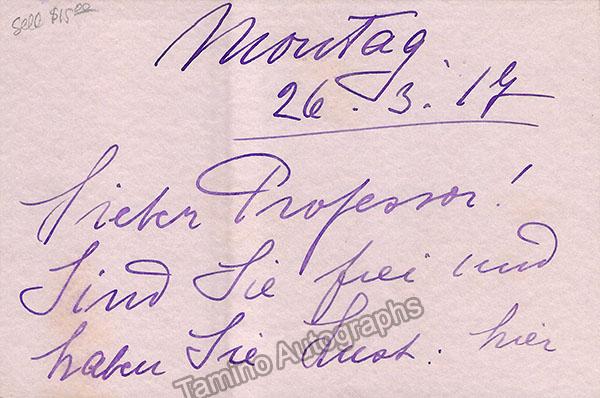 Sell $15.00
Montag
26. 3. 17
Lieber Professor!
Sind Sie frei und
haben Sie Lust. hier
Tamino Autographs